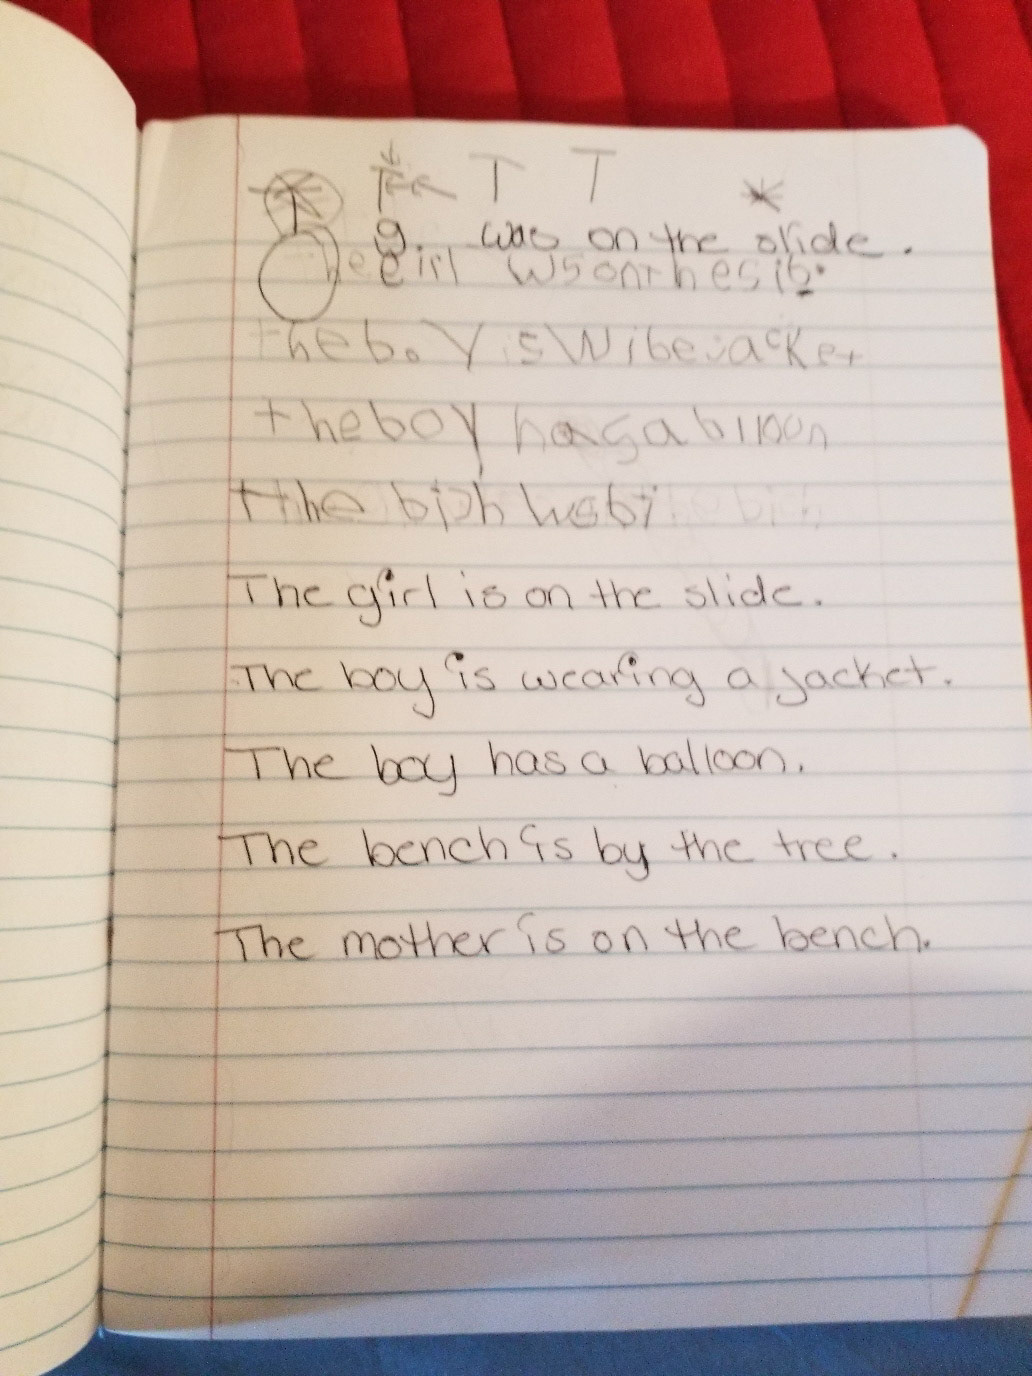 T T T
g. was on the slide.
he eirl wsonthesib.
theboy is Wibe jacket
theboy hasabiloon
the bich wsbi
The girl is on the slide.
The boy is wearing a jacket.
The boy has a balloon.
The bench is by the tree.
The mother is on the bench.